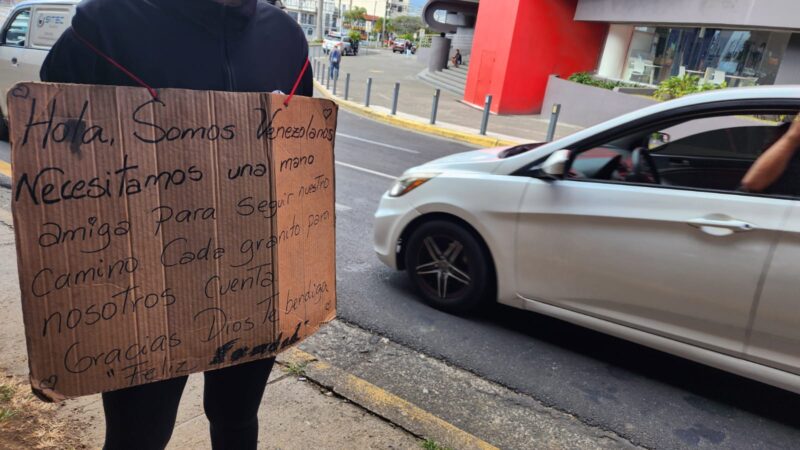 SITEC
Hola, Somos Venezolanos
Necesitamos una mano
amiga Para Seguir nuestro
Camino Cada granito para
nosotros Cuenta
Gracias Dios Te bendiga
"Feliz